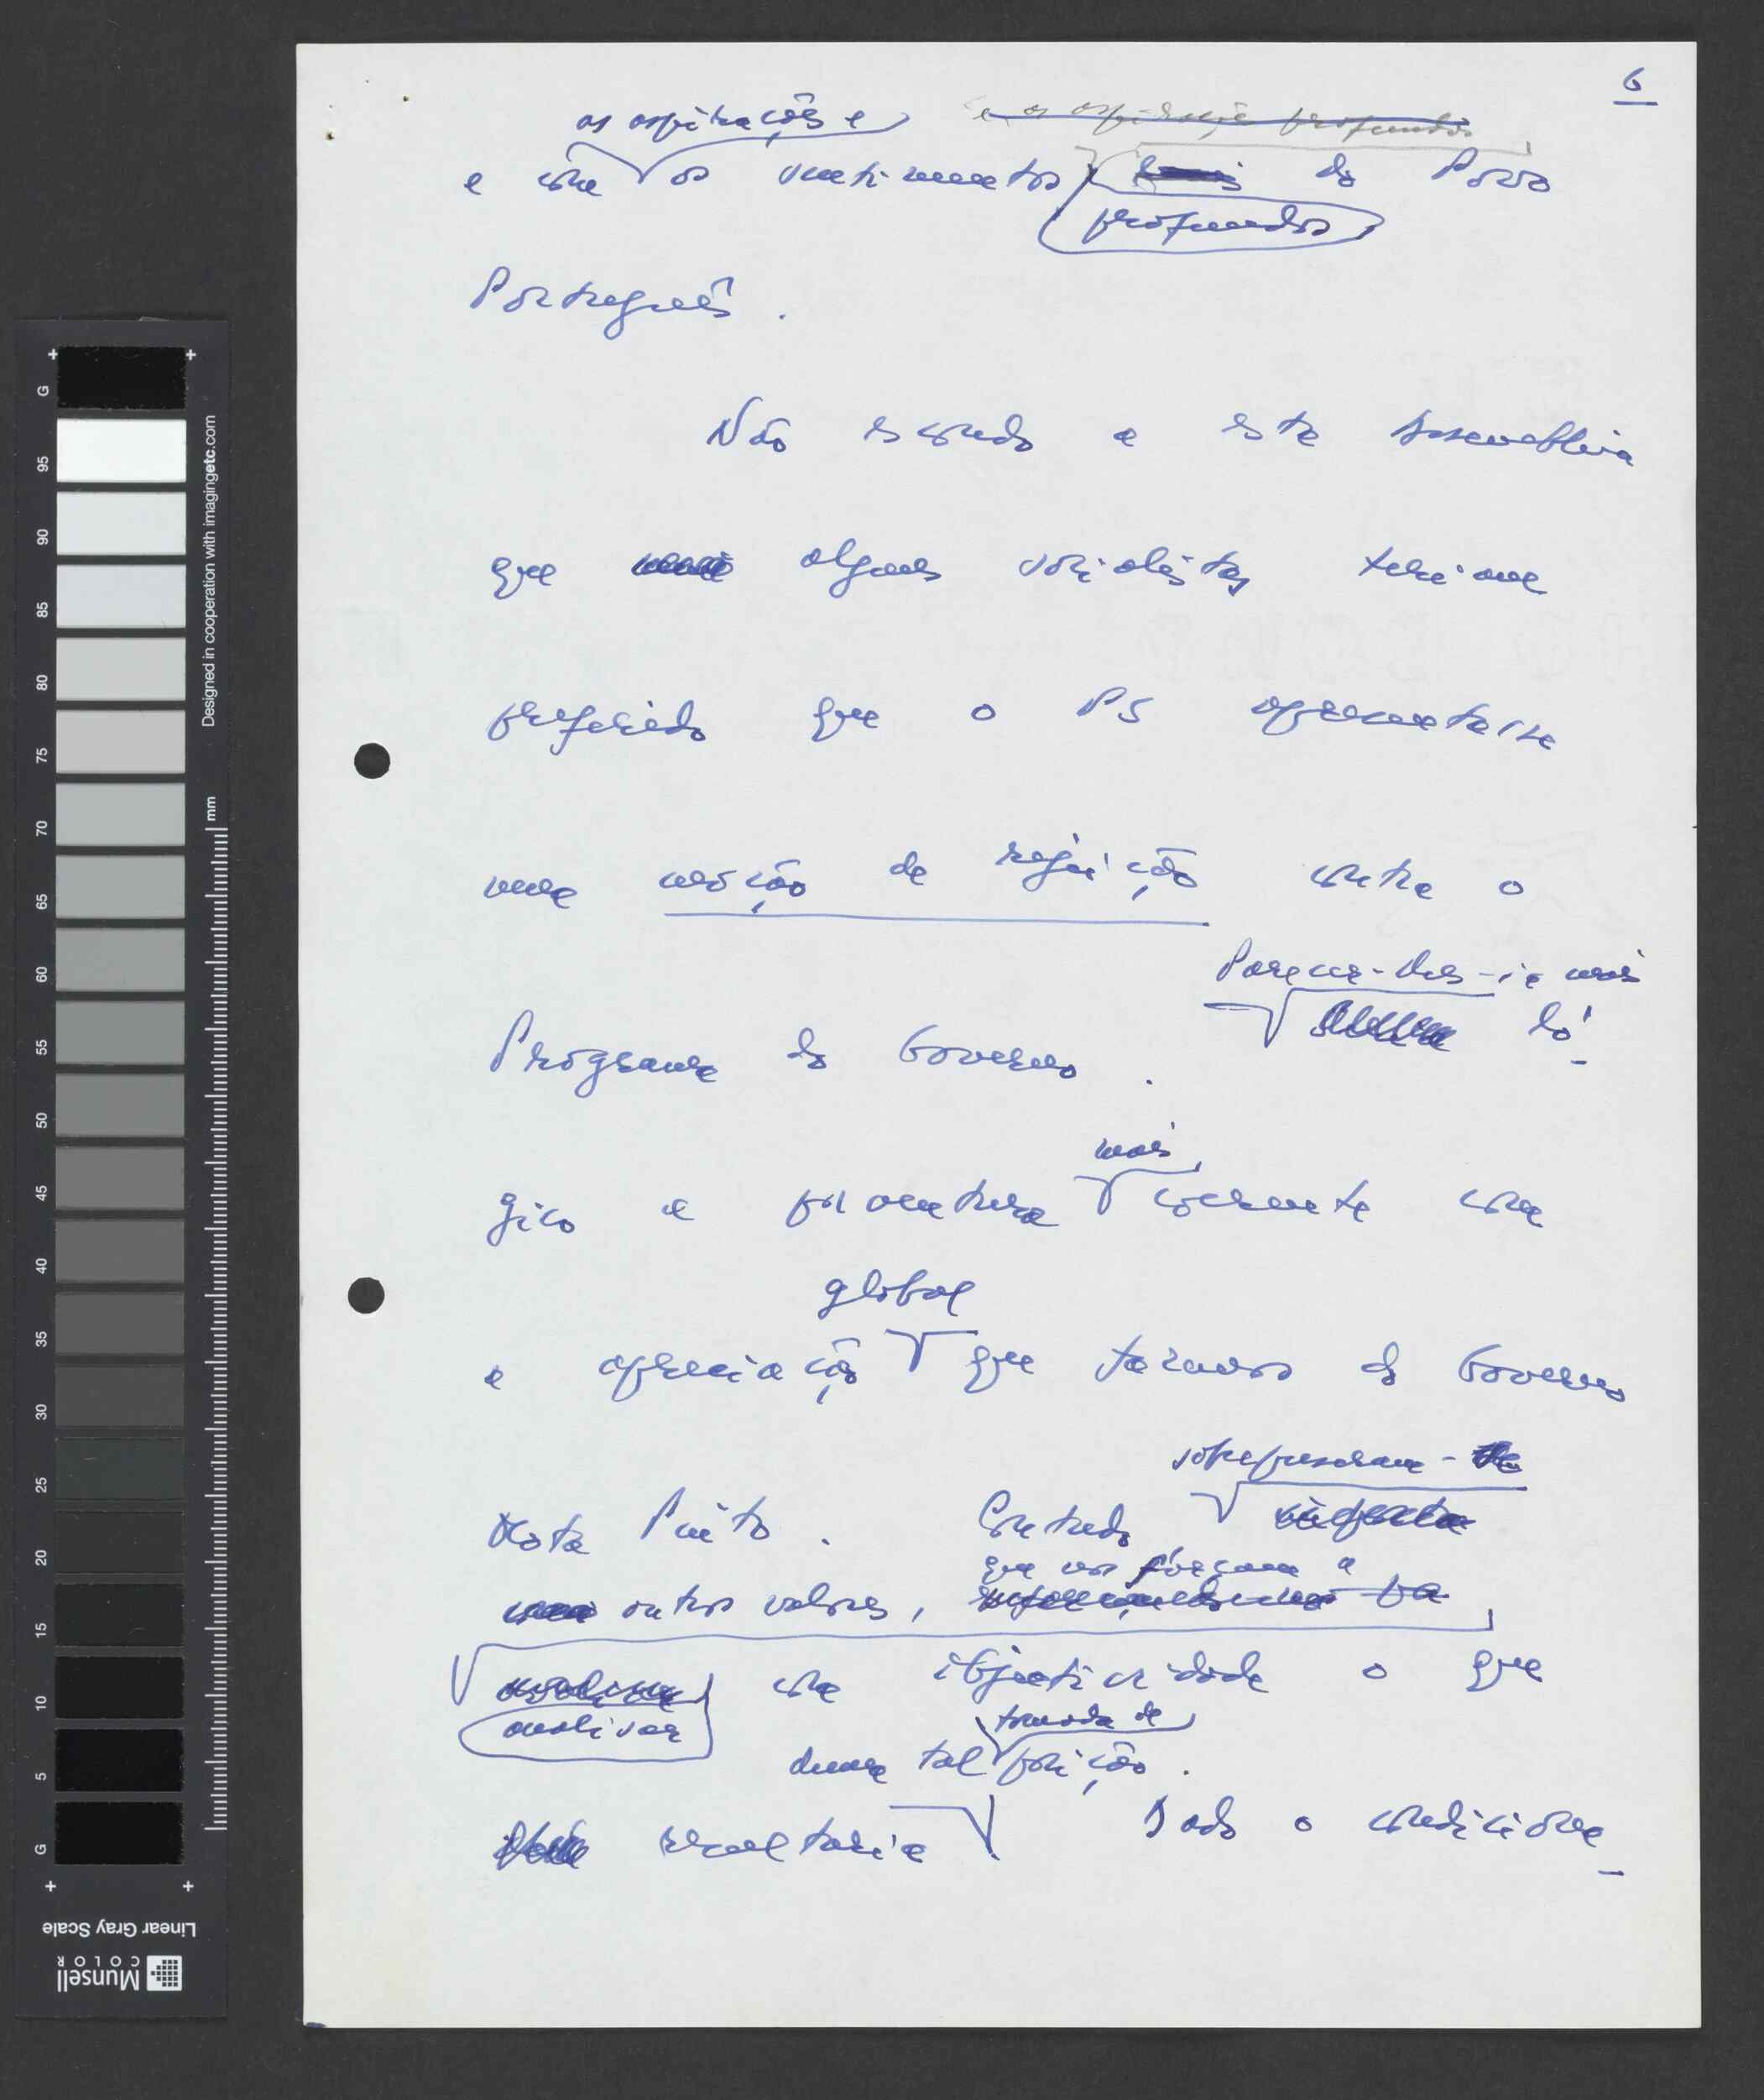 6
as aspirações e
e as aspirações profundas
e com os sentimentos do Povo
profundos
Português.
Não escondo a esta Assembleia
que alguns socialistas teriam
preferido que o PS apresentasse
uma moção de rejeição contra o
Parecer-lhes-ia mais
Programa do Governo. ló-
mais
gico e porventura coerente com
global
a apreciação que fazemos do Governo
sobrepuseram-se
Mota Pinto. Contudo
que nos forçam a
outros valores,
com objectividade o que
analisar
tomada de
duma tal posição.
resultaria Dado o condiciona-
G
95
90
85
80
75
70
65
60
55
50
45
40
35
30
25
20
15
10
5
G
mm
Designed in cooperation with imagingetc.com
Linear Gray Scale
Munsell
COLOR